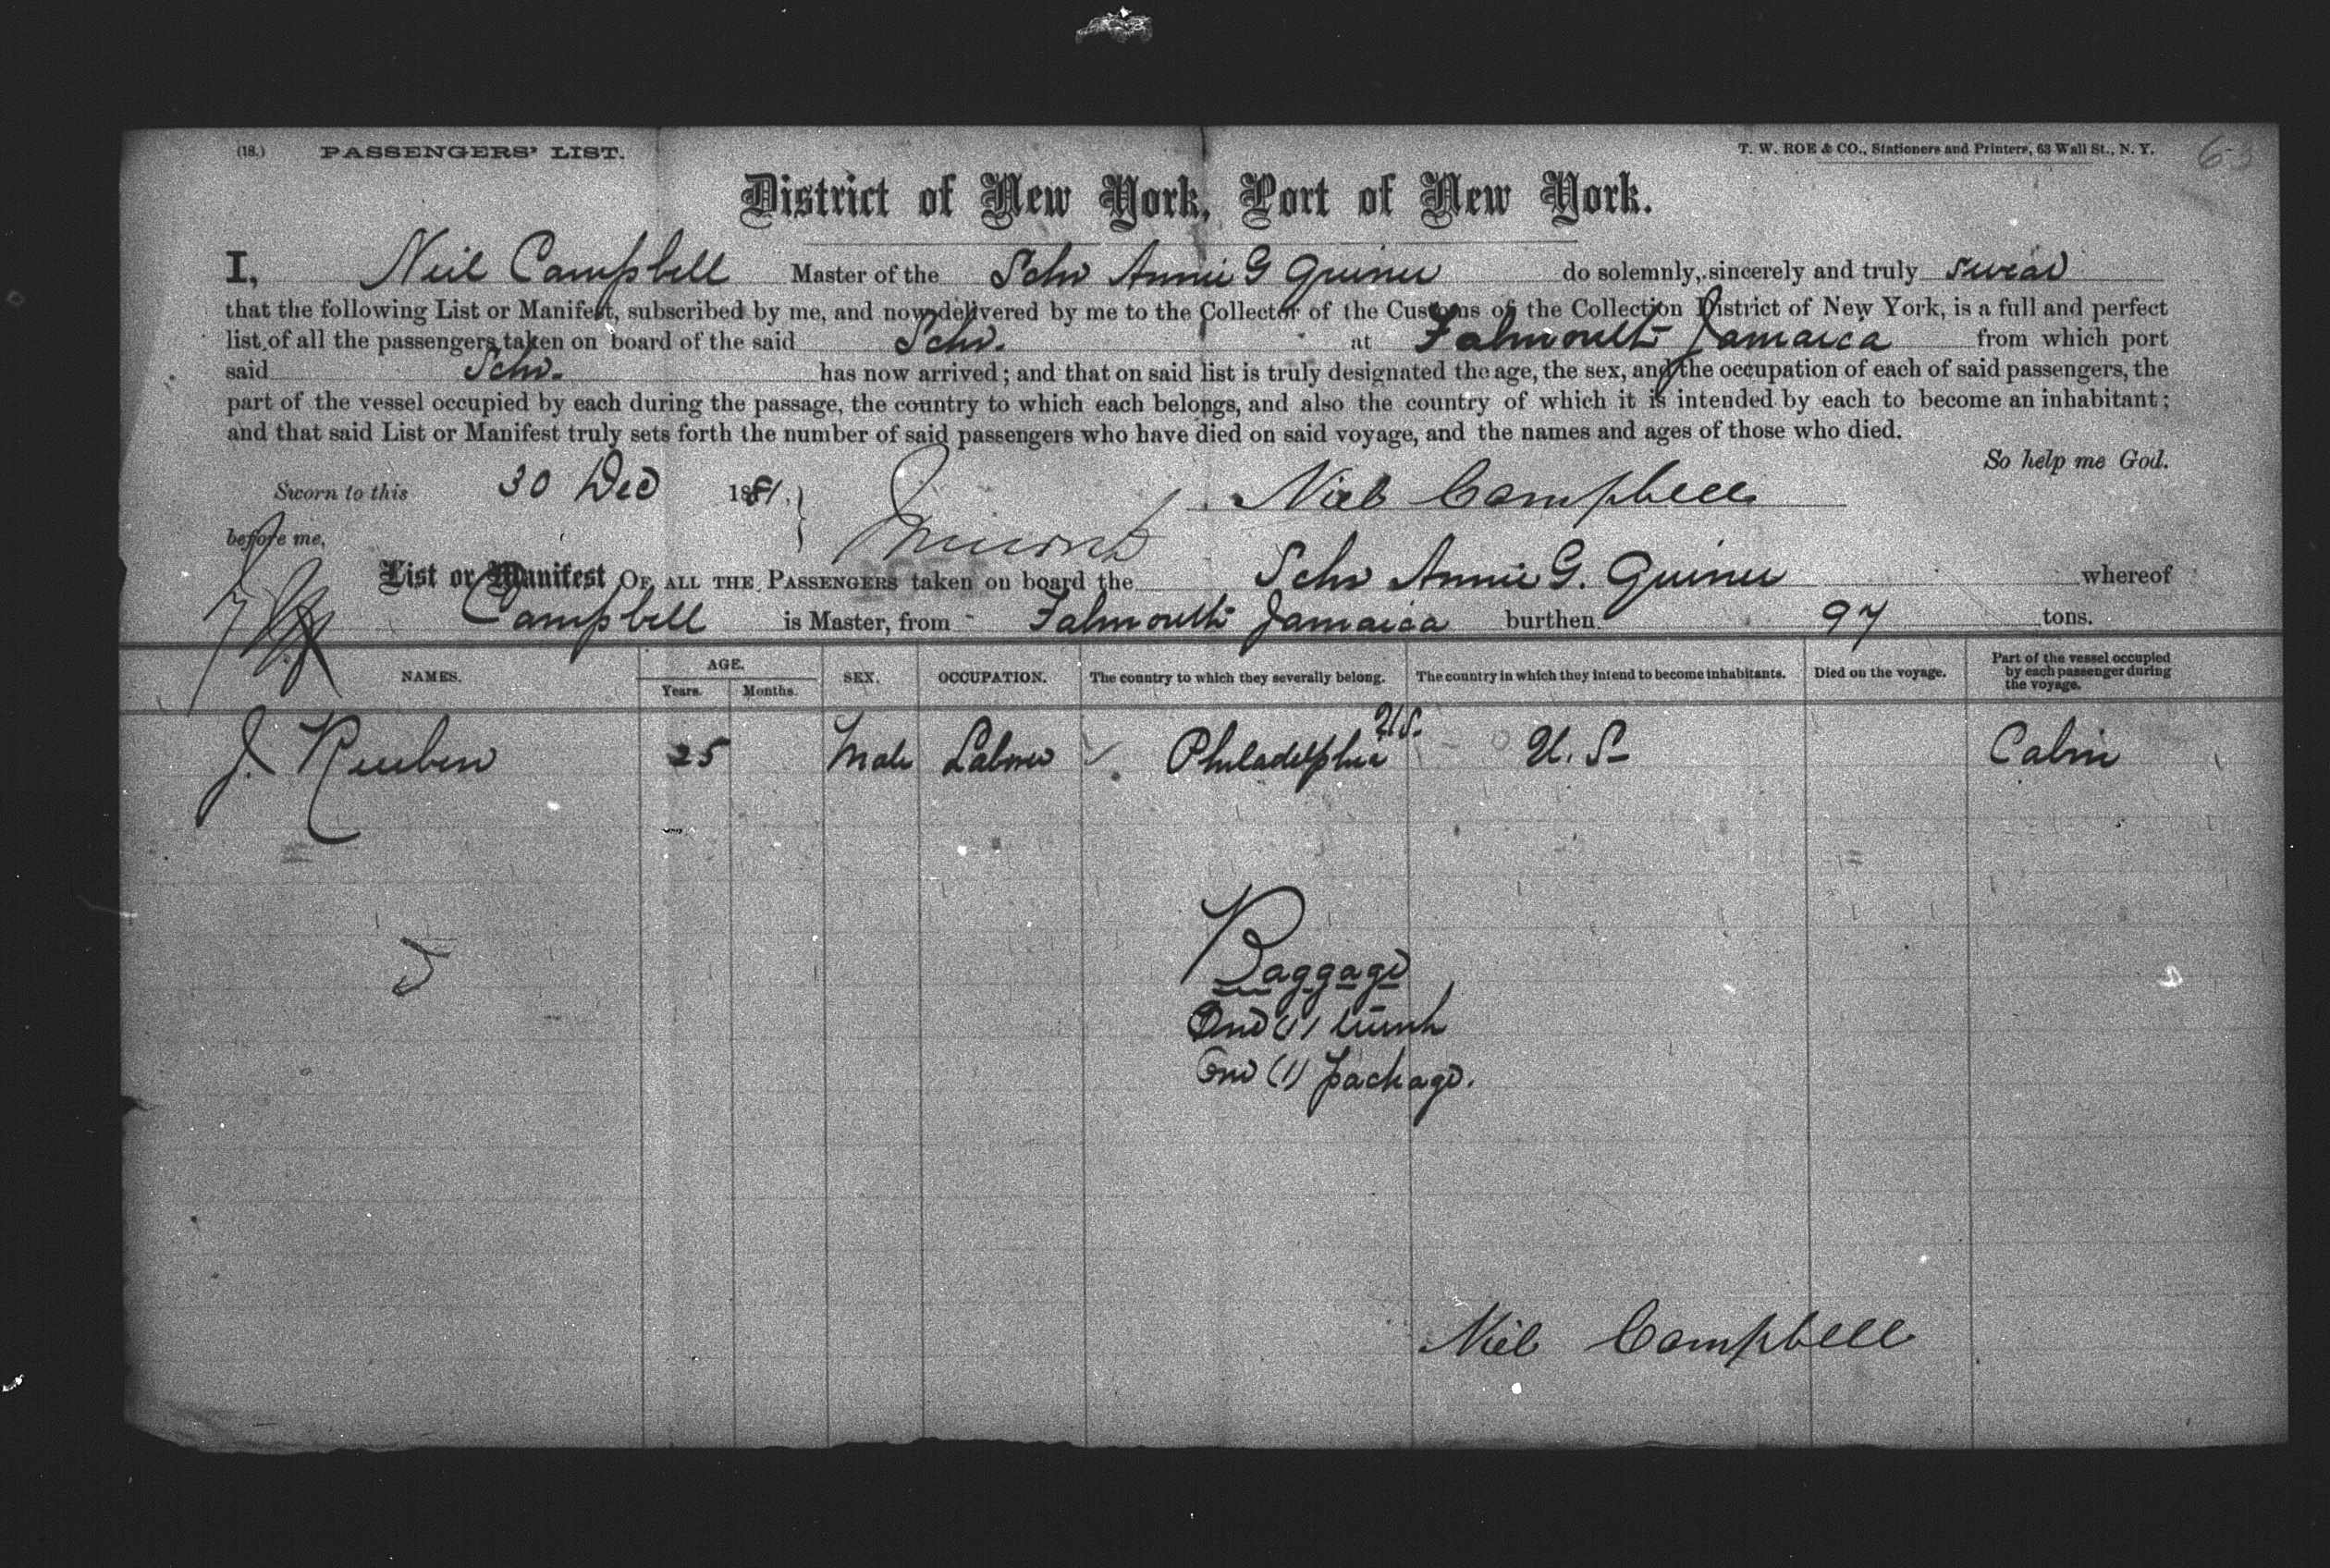 (18.) PASSENGERS' LIST. T. W. ROE & CO., Stationers and Printers, 63 Wall St., N. Y.
District of New York, Port of New York.
I, Neil Campbell Master of the Schr Annie G Quiner do solemnly, sincerely and truly swear
that the following List or Manifest, subscribed by me, and now delivered by me to the Collector of the Customs of the Collection District of New York, is a full and perfect
list of all the passengers taken on board of the said Schr. at Falmouth Jamaica from which port
said Schr. has now arrived; and that on said list is truly designated the age, the sex, and the occupation of each of said passengers, the
part of the vessel occupied by each during the passage, the country to which each belongs, and also the country of which it is intended by each to become an inhabitant;
and that said List or Manifest truly sets forth the number of said passengers who have died on said voyage, and the names and ages of those who died.
So help me God.
Sworn to this 30 Dec 1881. Niel Campbell
before me,
List or Manifest OF ALL THE PASSENGERS taken on board the Schr Annie G. Quiner whereof
Campbell is Master, from Falmouth Jamaica burthen 97 tons.
NAMES. AGE. Years. Months. SEX. OCCUPATION. The country to which they severally belong. The country in which they intend to become inhabitants. Died on the voyage. Part of the vessel occupied by each passenger during the voyage.
J. Reuben 25 Male Laborer Philadelphia U.S. U. S Cabin
Baggage
One (1) trunk
One (1) package.
Niel Campbell